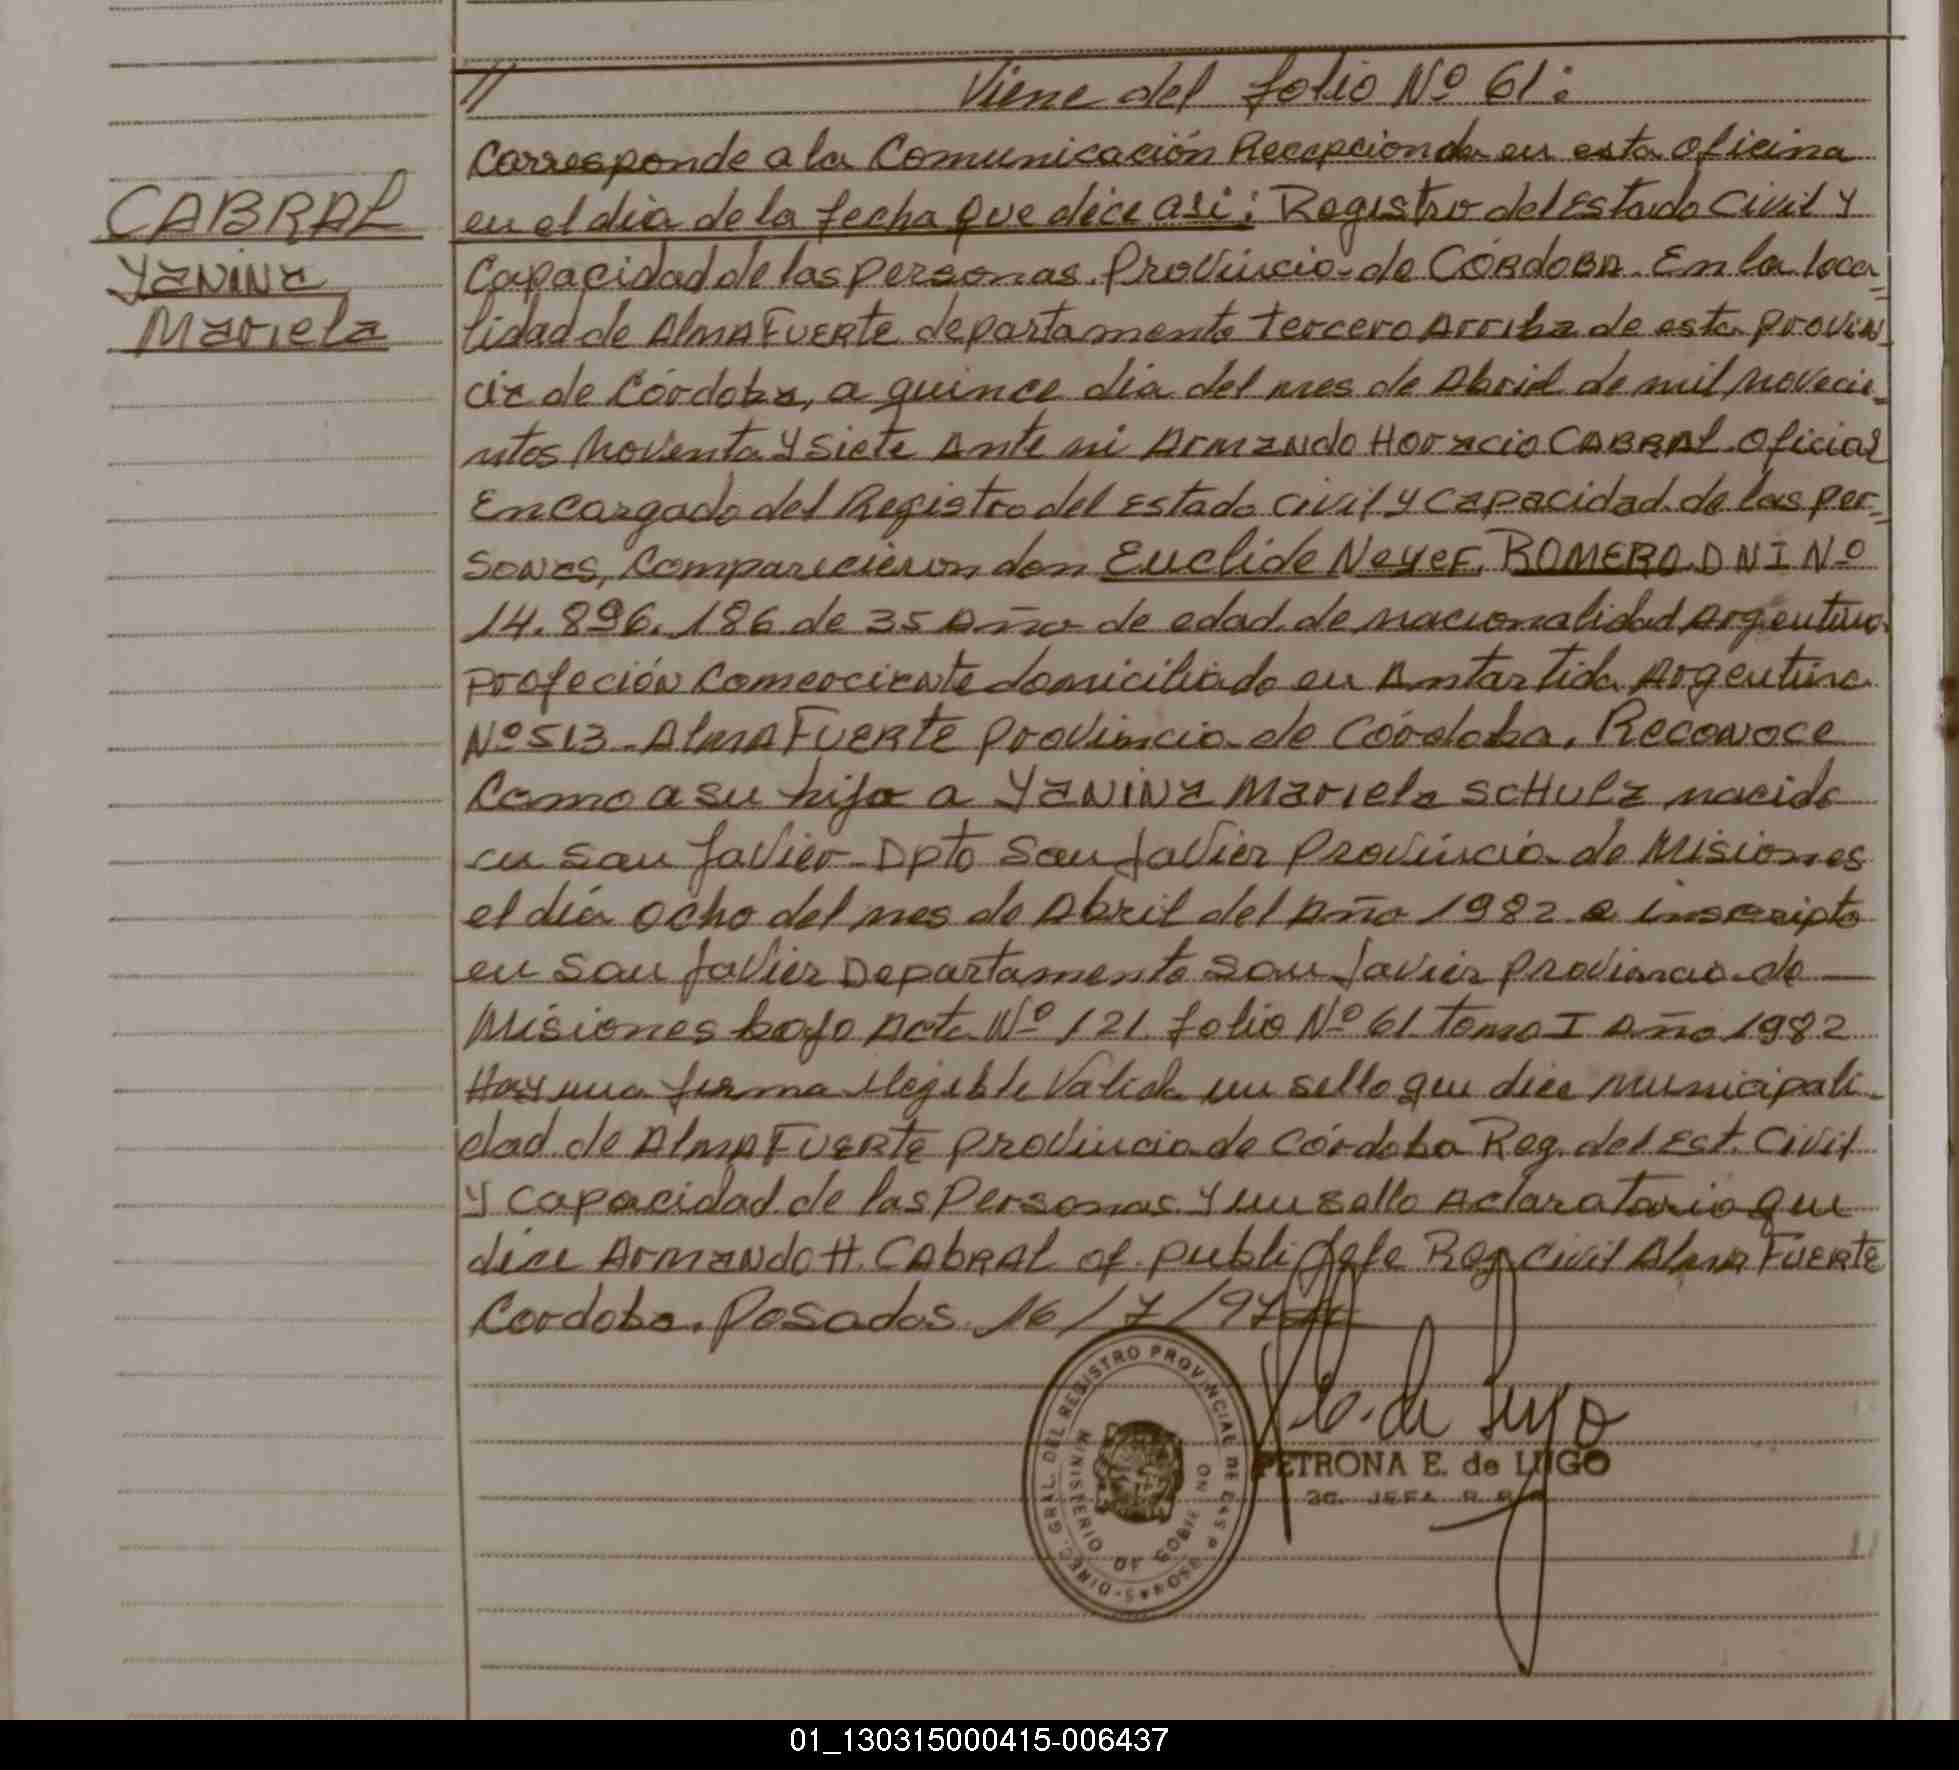 // Viene del folio Nº 61:
Corresponde a la Comunicación Recepcionda en esta oficina
CABRAL
en el dia de la fecha que dice asi: Registro del Estado Civil y
YANINA
Capacidad de las personas. Provincia de CÓRDOBA. En la loca=
Mariela
lidad de AlmAFUERTE departamento tercero Arriba de esta provin_
cia de Córdoba, a quince dia del mes de Abril de mil novecie_
ntos Noventa y siete Ante mi ArmANdo Horacio CABRAL Oficial
Encargado del Registro del Estado Civil y Capacidad de las per=
sonas, Comparecieron don Euclide Neyef. ROMERO. D N I Nº
14.896.186 de 35 Año de edad de nacionalidad Argentino
profeción Comerciante domiciliado en Antartida Argentina
Nº 513 - AlmAFUERTE provincia de Córdoba. Reconoce
Como a su hija a YANINA Mariela SCHULZ nacido
en San Javier - Dpto San Javier Provincia de Misiones
el día ocho del mes de Abril del Año 1982 e inscripto
en San Javier Departamento San Javier provincia de
Misiones bajo Acta Nº 121 folio Nº 61 tomo I Año 1982
Hay una firma ilegible Valida un sello que dice Municipali_
dad de AlmAFUERTE provincia de Córdoba Reg. del Est. Civil
y Capacidad de las Personas y un sello Aclaratorio que
dice ArmANdo H. CABRAL of. publi Jefe Reg Civil AlmAFUERTE
Cordoba. Posadas 16/7/97
DIREC. GRAL. DEL REGISTRO PROVINCIAL DE LAS PERSONAS
MINISTERIO DE GOBIERNO
de Lugo
PETRONA E. de LUGO
JEFA
01_130315000415-006437